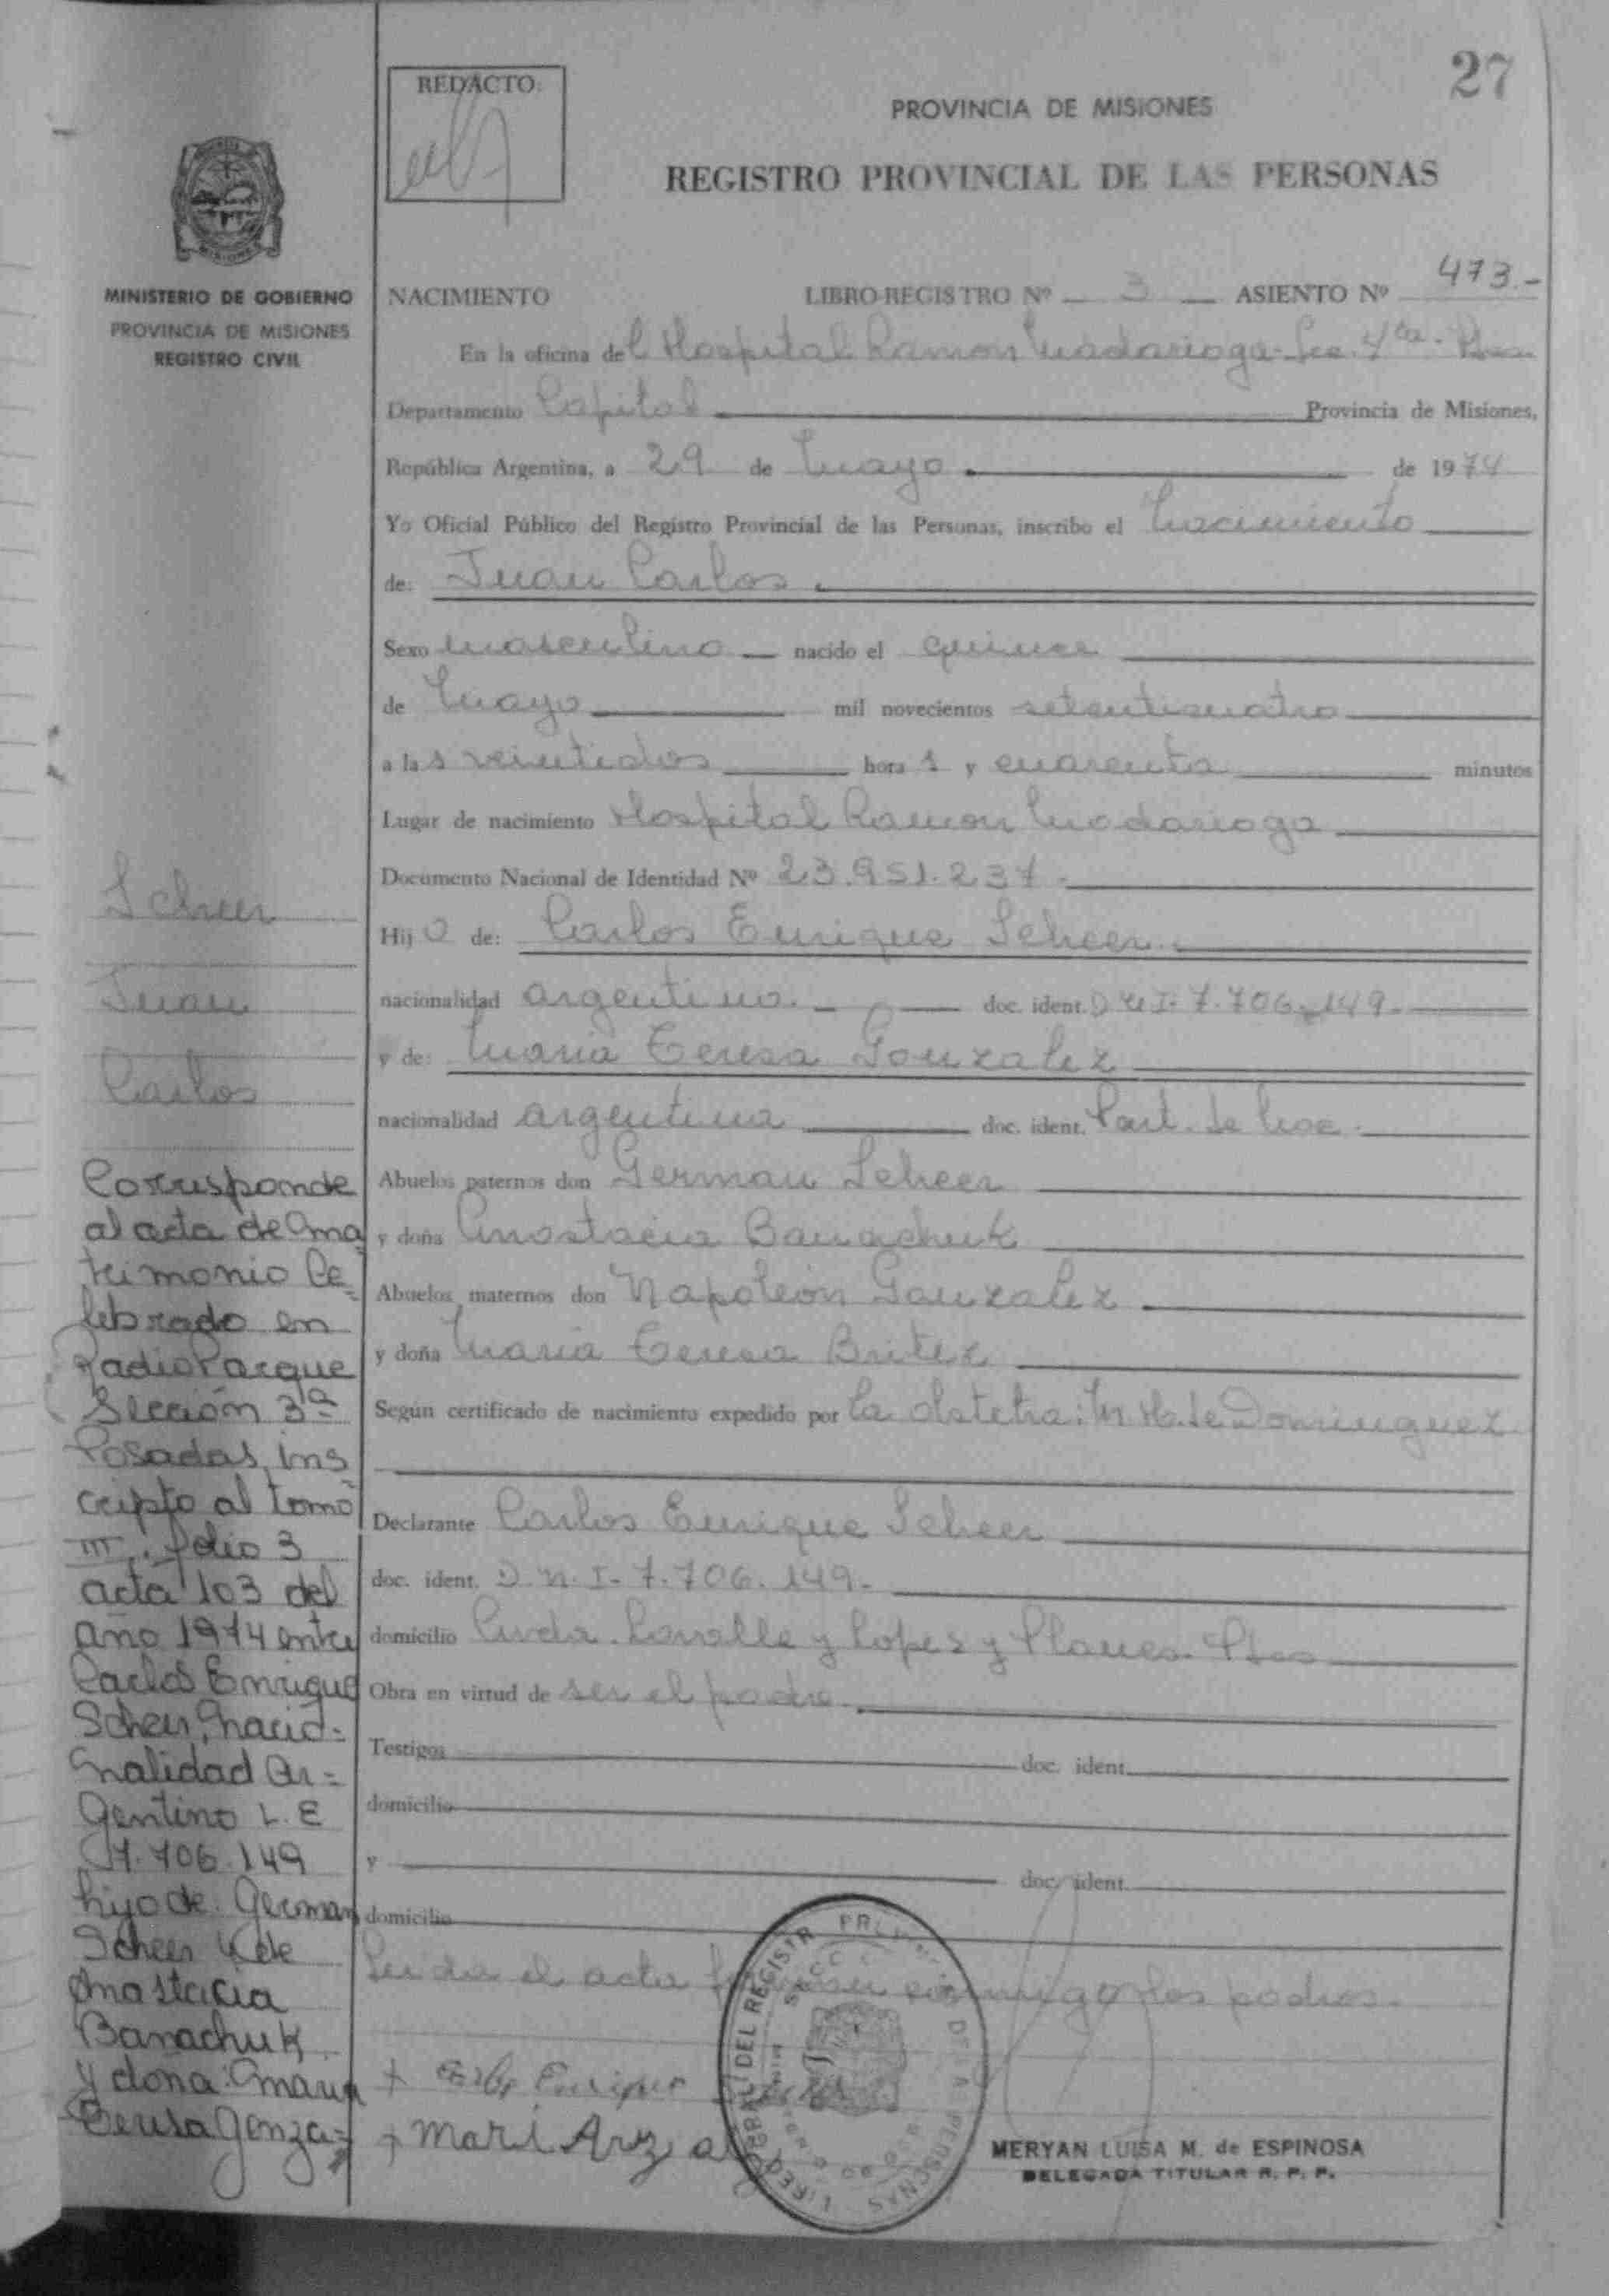 27
REDACTO:
PROVINCIA DE MISIONES
REGISTRO PROVINCIAL DE LAS PERSONAS
MINISTERIO DE GOBIERNO
PROVINCIA DE MISIONES
REGISTRO CIVIL
NACIMIENTO LIBRO-REGISTRO Nº 3 ASIENTO Nº 473.-
En la oficina del Hospital Ramon Madariaga - Sec. 4ta.
Departamento Capital Provincia de Misiones,
República Argentina, a 29 de Mayo de 1974
Yo Oficial Público del Registro Provincial de las Personas, inscribo el Nacimiento
de: Juan Carlos
Sexo masculino nacido el quince
de Mayo mil novecientos setenticuatro
a las veintidos horas y cuarenta minutos
Lugar de nacimiento Hospital Ramon Madariaga
Documento Nacional de Identidad Nº 23.951.237.-
Hijo de: Carlos Enrique Scheer
nacionalidad argentino. doc. ident. D.N.I. 7.706.149.
y de: Maria Teresa Gonzalez
nacionalidad argentina doc. ident. Part. de Nac.
Abuelos paternos don German Scheer
y doña Anastacia Banachuk
Abuelos maternos don Napoleón Gonzalez
y doña Maria Teresa Britez
Según certificado de nacimiento expedido por la obstetra: M. H. de Dominguez
Declarante Carlos Enrique Scheer
doc. ident. D.N.I. 7.706.149.-
domicilio Avda. Lavalle y Lopes y Planes.
Obra en virtud de ser el padre.
Testigos doc. ident.
domicilio
y doc. ident.
domicilio
Leida el acta firman conmigo los padres.
MERYAN LUISA M. de ESPINOSA
DELEGADA TITULAR R. P. P.
Scheer
Juan
Carlos
Corresponde
al acta de ma
trimonio Ce
lebrado en
Radio Parque
Sección 3ª
Posadas, ins
cripto al tomo
III, folio 3
acta 103 del
año 1974 entre
Carlos Enrique
Scheer, nacio-
nalidad Ar-
gentino L.E
7.706.149
hijo de: German
Scheer y de
Anastacia
Banachuk
y doña: Maria
Teresa Gonza-